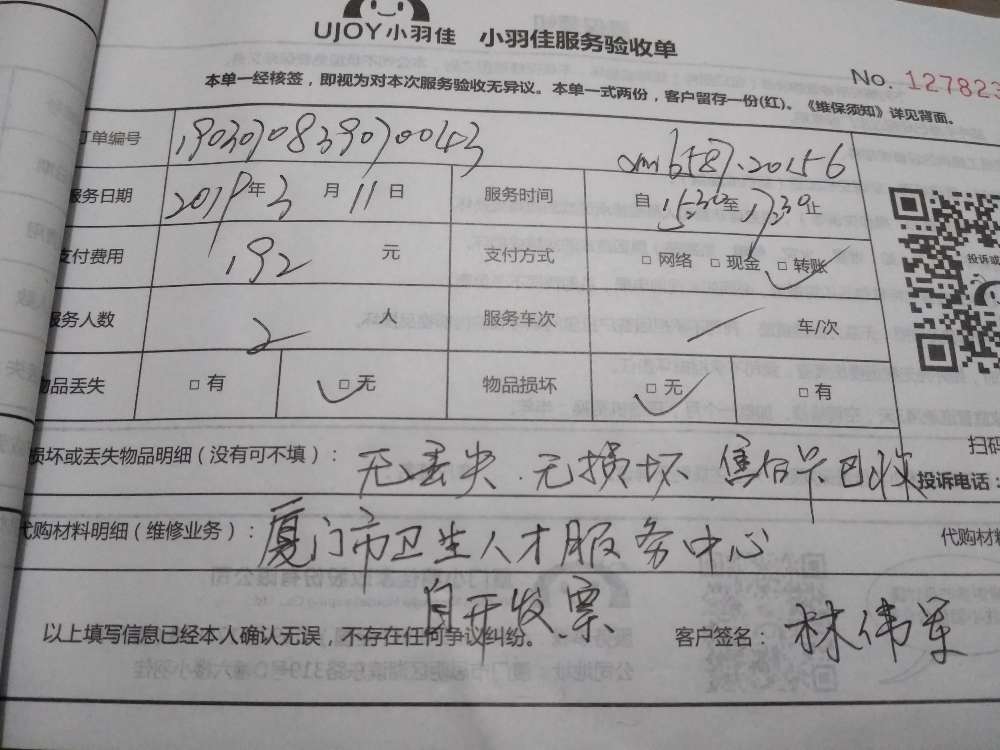 UJOY小羽佳 小羽佳服务验收单
No. 127823
本单一经核签，即视为对本次服务验收无异议。本单一式两份，客户留存一份(红)。《维保须知》详见背面。
订单编号 19030708390700103
服务日期 2019年3月11日 服务时间 自15:30至17:30止
支付费用 192元 支付方式 □网络 □现金 □转账
服务人数 2人 服务车次 车/次
物品丢失 □有 □无 物品损坏 □无 □有
投诉或
扫码
损坏或丢失物品明细（没有可不填）：无丢失.无损坏 售后单已收
投诉电话：
代购材料明细（维修业务）：厦门市卫生人才服务中心
代购材料
自开发票
以上填写信息已经本人确认无误，不存在任何争议纠纷。 客户签名：林伟军